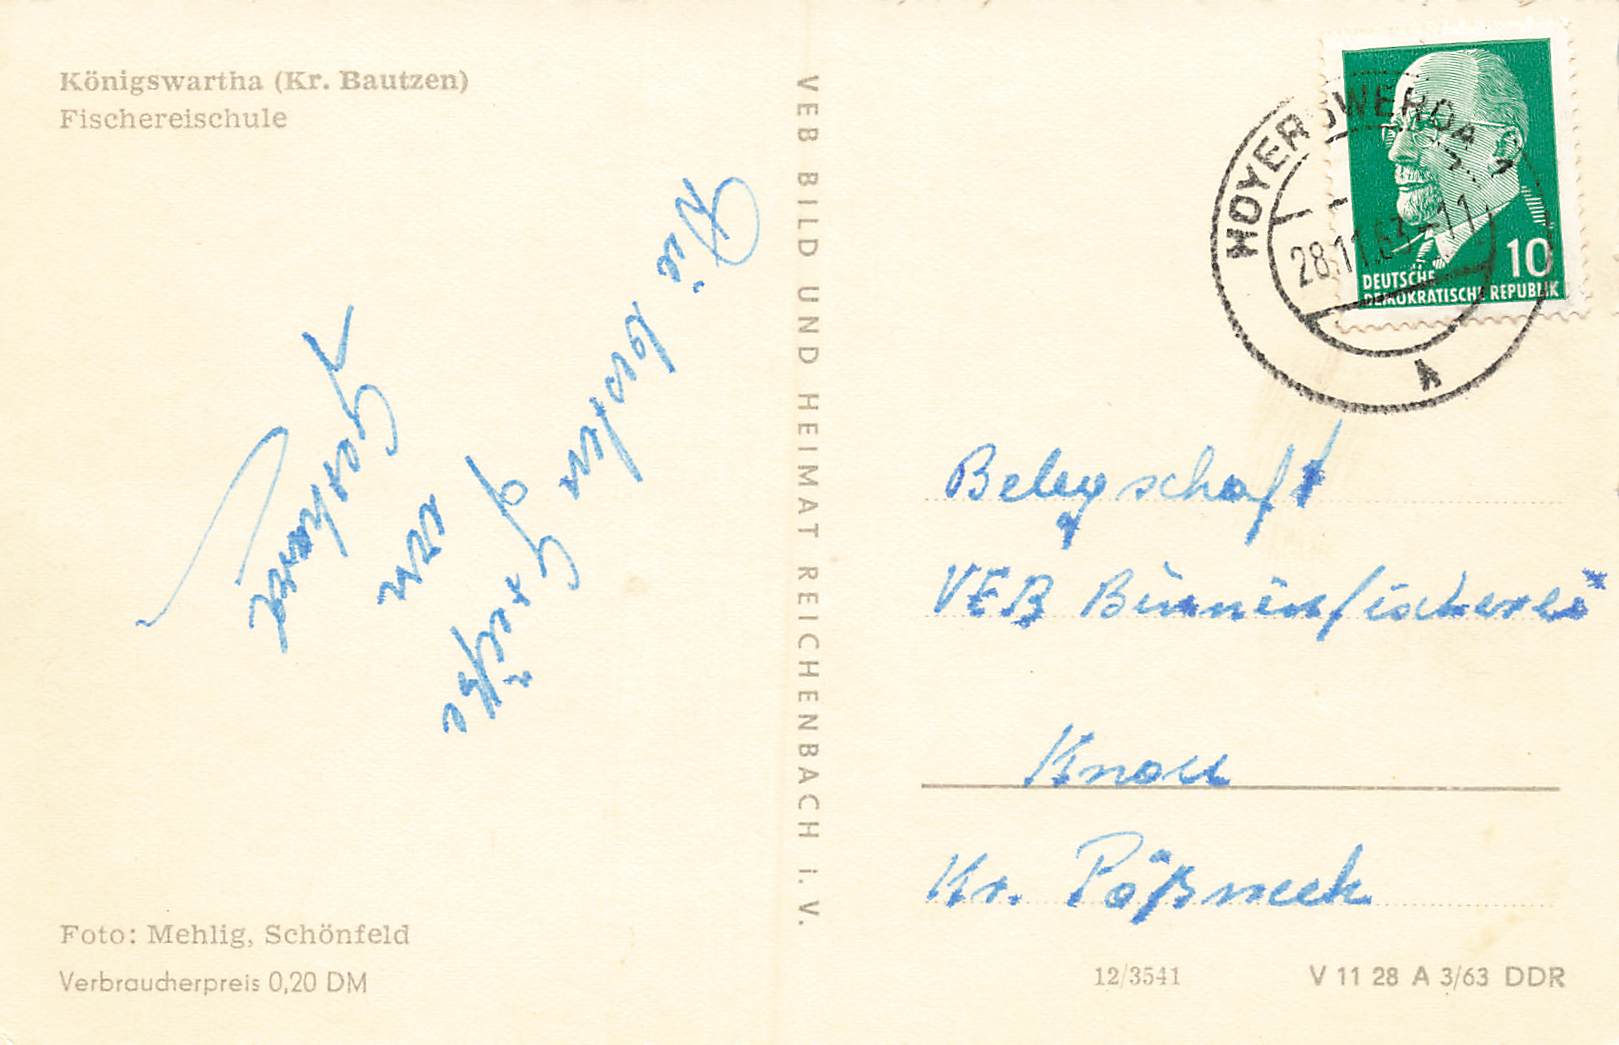 Königswartha (Kr. Bautzen)
Fischereischule
Die besten
Grüße
von
G. Gerhard
Foto: Mehlig, Schönfeld
Verbraucherpreis 0,20 DM
VEB BILD UND HEIMAT REICHENBACH i. V.
HOYERSWERDA 1
28.11.63-11
DEUTSCHE
DEMOKRATISCHE REPUBLIK
10
Belegschaft
VEB Binnenfischerei
Knau
Kr. Pößneck
12/3541
V 11 28 A 3/63 DDR